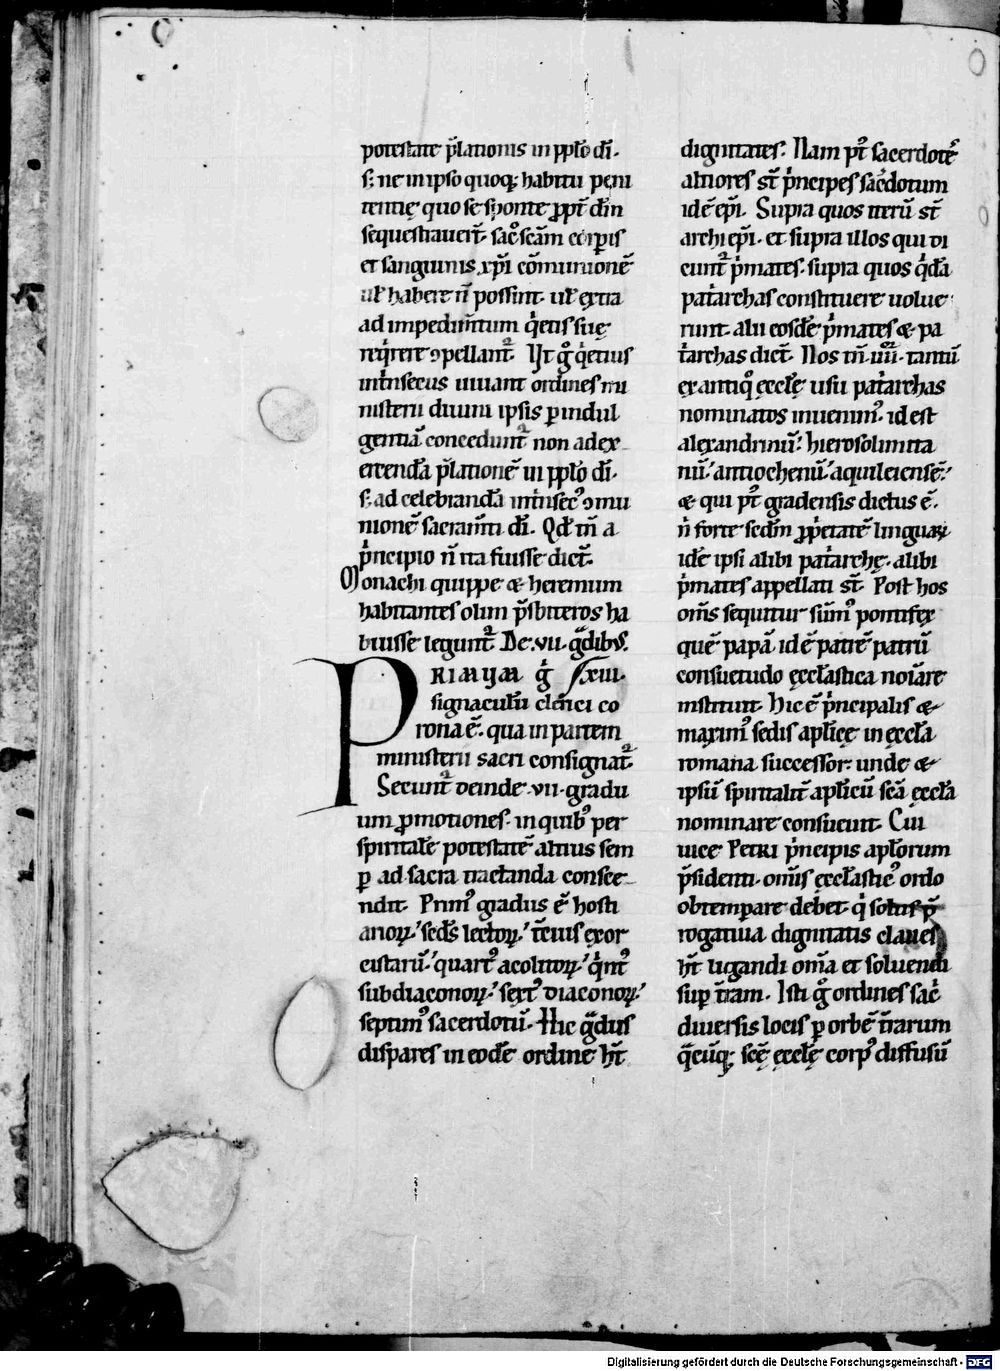 potestate p̄lationis in pplo di.
s; ne in ipso quoq; habitu peni
tentię quo se sponte ꝓpt̄ dm̄
sequestraver̄t. sac̄o scām corꝑis
et sanguinis xp̄i cōmunionē
ul̄ habere n̄ possint. ul̄ extra
ad impedim̄tum q̇etis suę
req̇rere ꝯpellant᷑. Ut g̊ q̇etius
int̄nsecus vivant ordines mi
nisterii divini ipsis ꝑ indul
gentiā concedunt᷑ non ad ex
ercendā p̄lationē in pplo dī.
s; ad celebrandā int̄nsec᷒ ꝯmu
nionē sacram̄ti dī. Qd̄ tn̄ a
p̄ncipio n̄ ita fuisse dict᷑.
Monachi quippe & heremum
habitantes olim p̄sbiteros ha
buisse legunt᷑. De .vii. g̈dib᷒.
PRIMUM g̊
signaculū clerici co
rona ē. qua in partem
ministerii sacri consignat᷑.
Secunt᷑ deinde .vii. gradu
um ꝓmotiones. in quib᷒ per
spiritalē potestatē altius sem
ꝑ ad sacra tractanda conscen
ndit. Prim᷒ gradus ē hosti
anoꝝ. sed̄s lectoꝝ. t̄cius exor
cistarū. quart᷒ acolitoꝝ. q̇nt᷒
subdiaconoꝝ. sext᷒ diaconoꝝ.
septim᷒ sacerdotū. Hic g̈dus
dispares in eodē ordine hn̄t
dignitates. Nam pt᷒ sacerdotē᷒
altiores st̄ p̄ncipes sac̄dotum
idē ep̄i. Supra quos iterū st̄
archiep̄i. et supra illos qui di
cunt᷑ p̄mates. supra quos q̇dā
pat̄archas constituere volue
runt. alii eosdē p̄mates & pa
t̄archas dict̄. Nos tn̄ .iiii. tantū
ex antiq᷒ ęccłę usu pat̄archas
nominatos invenim᷒. id est
alexandrinū. hierosolimita
nū. antiochenū. aquileiensē.
& qui pt᷒ gradensis dictus ē.
n̄ forte sedm̄ ꝓp̄etatē linguaꝝ
idē ipsi alibi pat̄archę. alibi
p̄mates appellati st̄. Post hos
om̄s sequitur sūm᷒ pontifex
quē papā idē patrē patrū
consuetudo ęccłastica noīare
instituit. Hic ē p̄ncipalis &
maxim᷒ sedis aplicę in ęccła
romana successor. unde &
ipsū spiritalit᷑ aplicū scā ęccła
nominare consuevit. Cui
vice PETRI p̄ncipis apłorum
p̄sidenti. om̄is ęccłastic᷒ ordo
obtemꝑare debet. q̇ solus p̄
rogativa dignitatis claves
hт̄ ligandi om̄a et solvendi
suꝑ t̄ram. Isti g̊ ordines sac̄
diversis locis ꝑ orbē t̄rarum
q̈cūq; scę̄ ęccłę corp᷒ diffusū